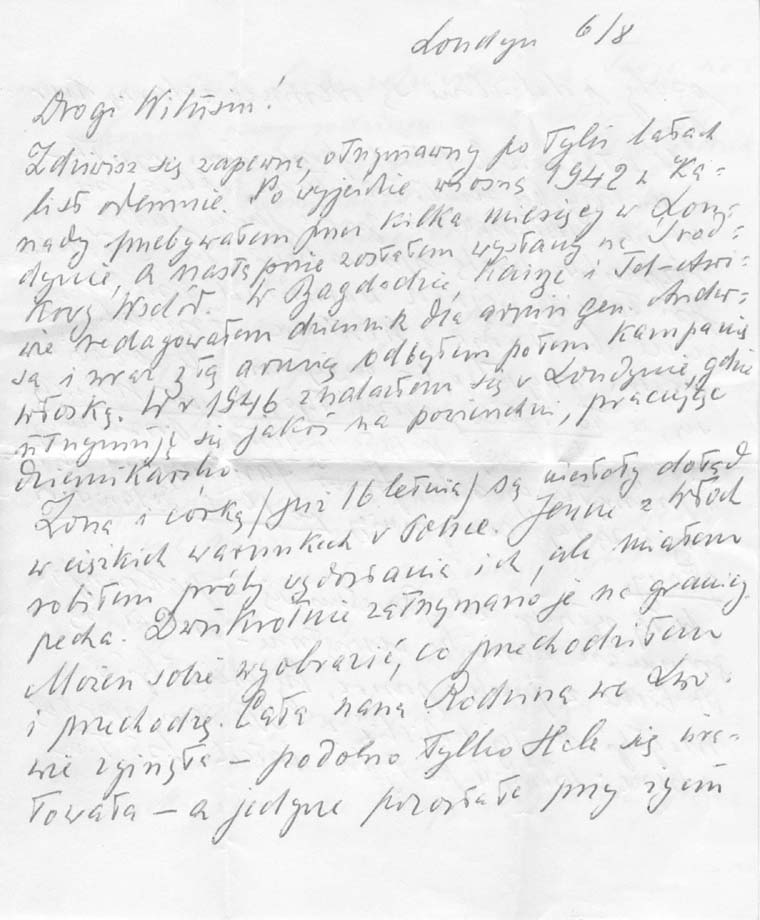 Londyn 6/8
Drogi Witusiu!
Zdziwisz się zapewne, otrzymawszy po tylu latach
list odemnie. Po wyjeździe wiosną 1942 z Ka-
nady przebywałem przez kilka miesięcy w Lon-
dynie, a następnie zostałem wysłany na Środ-
kowy Wschód. W Bagdadzie, Kairze i Tel-Awi-
wie redagowałem dziennik dla armii gen. Ander-
sa i wraz z tą armią odbyłem potem kampanię
włoską. W r 1946 znalazłem się w Londynie, gdzie
utrzymuję się jakoś na powierzchni, pracując
dziennikarsko.
Żona i córka /już 16 letnia/ są niestety dotąd
w ciężkich warunkach w Polsce. Jeszcze z Włoch
robiłem próby wydostania ich, ale miałem
pecha. Dwukrotnie zatrzymano je na granicy.
Możesz sobie wyobrazić, co przechodziłem
i przechodzę. Cała nasza Rodzina we Lwo-
wie zginęła – podobno tylko Hela się ura-
towała – a jedyne pozostałe przy życiu